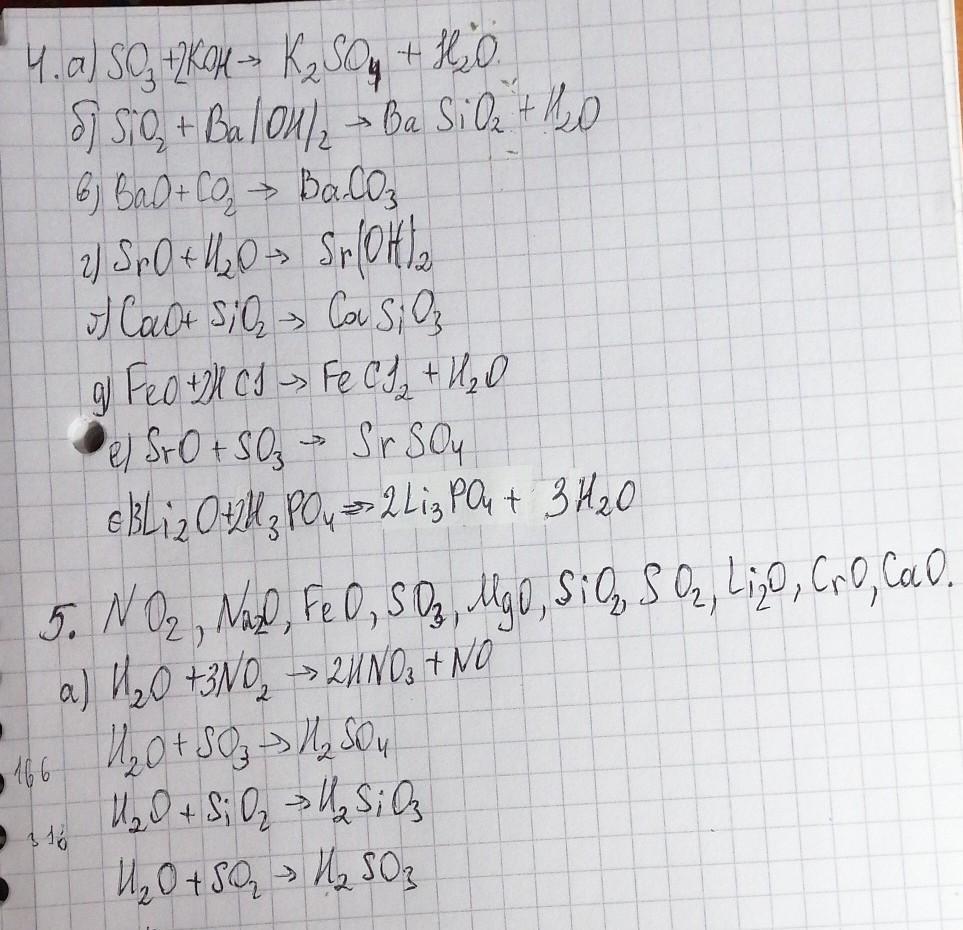 4. а) SO₃+2KOH→ K₂SO₄ + H₂O.
б) SiO₂ + Ba(OH)₂ → Ba SiO₂ + H₂O
в) BaO + CO₂ → BaCO₃
г) SrO + H₂O → Sr(OH)₂
CaO + SiO₂ → CaSiO₃
д) FeO + 2HCl → FeCl₂ + H₂O
е) SrO + SO₃ → SrSO₄
3Li₂O + 2H₃PO₄ → 2Li₃PO₄ + 3H₂O
5. NO₂, Na₂O, FeO, SO₃, MgO, SiO₂, SO₂, Li₂O, CrO, CaO.
а) H₂O + 3NO₂ → 2HNO₃ + NO
H₂O + SO₃ → H₂SO₄
166
H₂O + SiO₂ → H₂SiO₃
316
H₂O + SO₂ → H₂SO₃